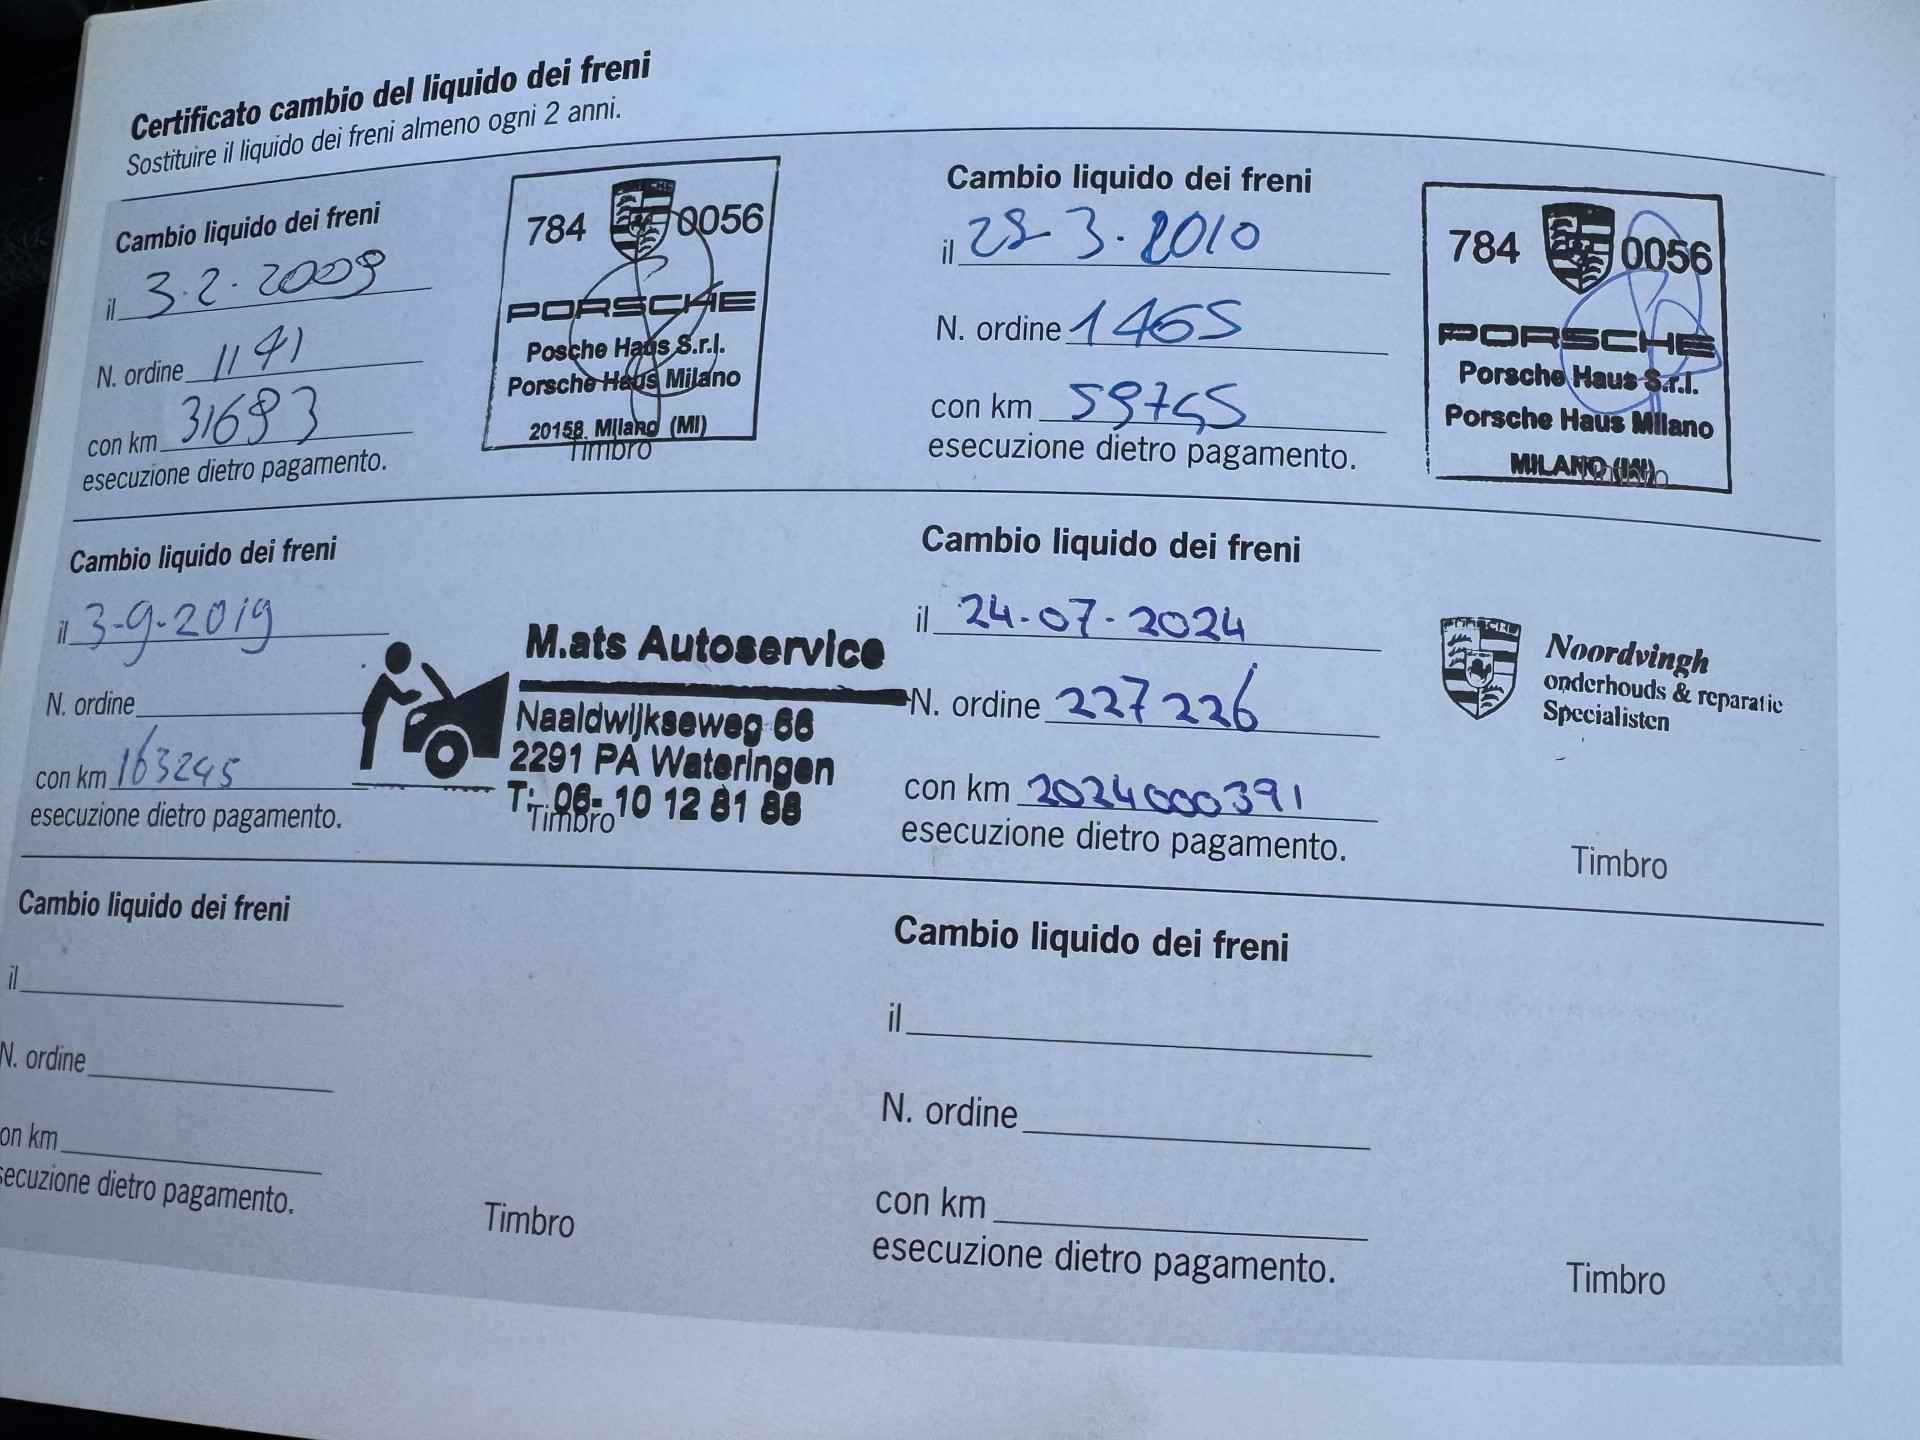 Certificato cambio del liquido dei freni
Sostituire il liquido dei freni almeno ogni 2 anni.
Cambio liquido dei freni
il 3.2.2009
N. ordine 1141
con km 31693
esecuzione dietro pagamento.
784 PORSCHE 0056
PORSCHE
Posche Haus S.r.l.
Porsche Haus Milano
20158 Milano (MI)
Timbro
Cambio liquido dei freni
il 3.2010
N. ordine 1465
con km
esecuzione dietro pagamento.
784 0056
PORSCHE
Porsche Haus S.r.l.
Porsche Haus Milano
MILANO (MI)
Timbro
Cambio liquido dei freni
il 3-9-2019
N. ordine
con km 163245
esecuzione dietro pagamento.
M.ats Autoservice
Naaldwijkseweg 66
2291 PA Wateringen
T: 06- 10 12 81 88
Timbro
Cambio liquido dei freni
il 24-07-2024
N. ordine 227226
con km 2024000391
esecuzione dietro pagamento.
PORSCHE
Noordvingh
onderhouds & reparatie
Specialisten
Timbro
Cambio liquido dei freni
il
N. ordine
on km
secuzione dietro pagamento.
Timbro
Cambio liquido dei freni
il
N. ordine
con km
esecuzione dietro pagamento.
Timbro